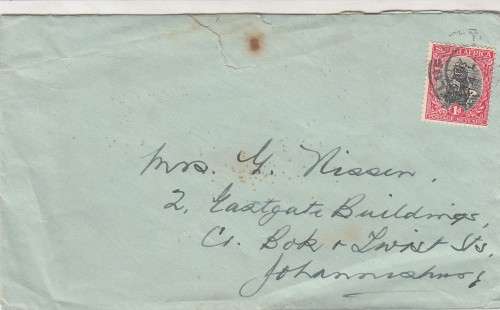 S. AFRICA
1d
POSTAGE REVENUE
Mrs. G. Nissen,
2, Eastgate Buildings,
Cr. Bok & Twist Sts,
Johannesburg